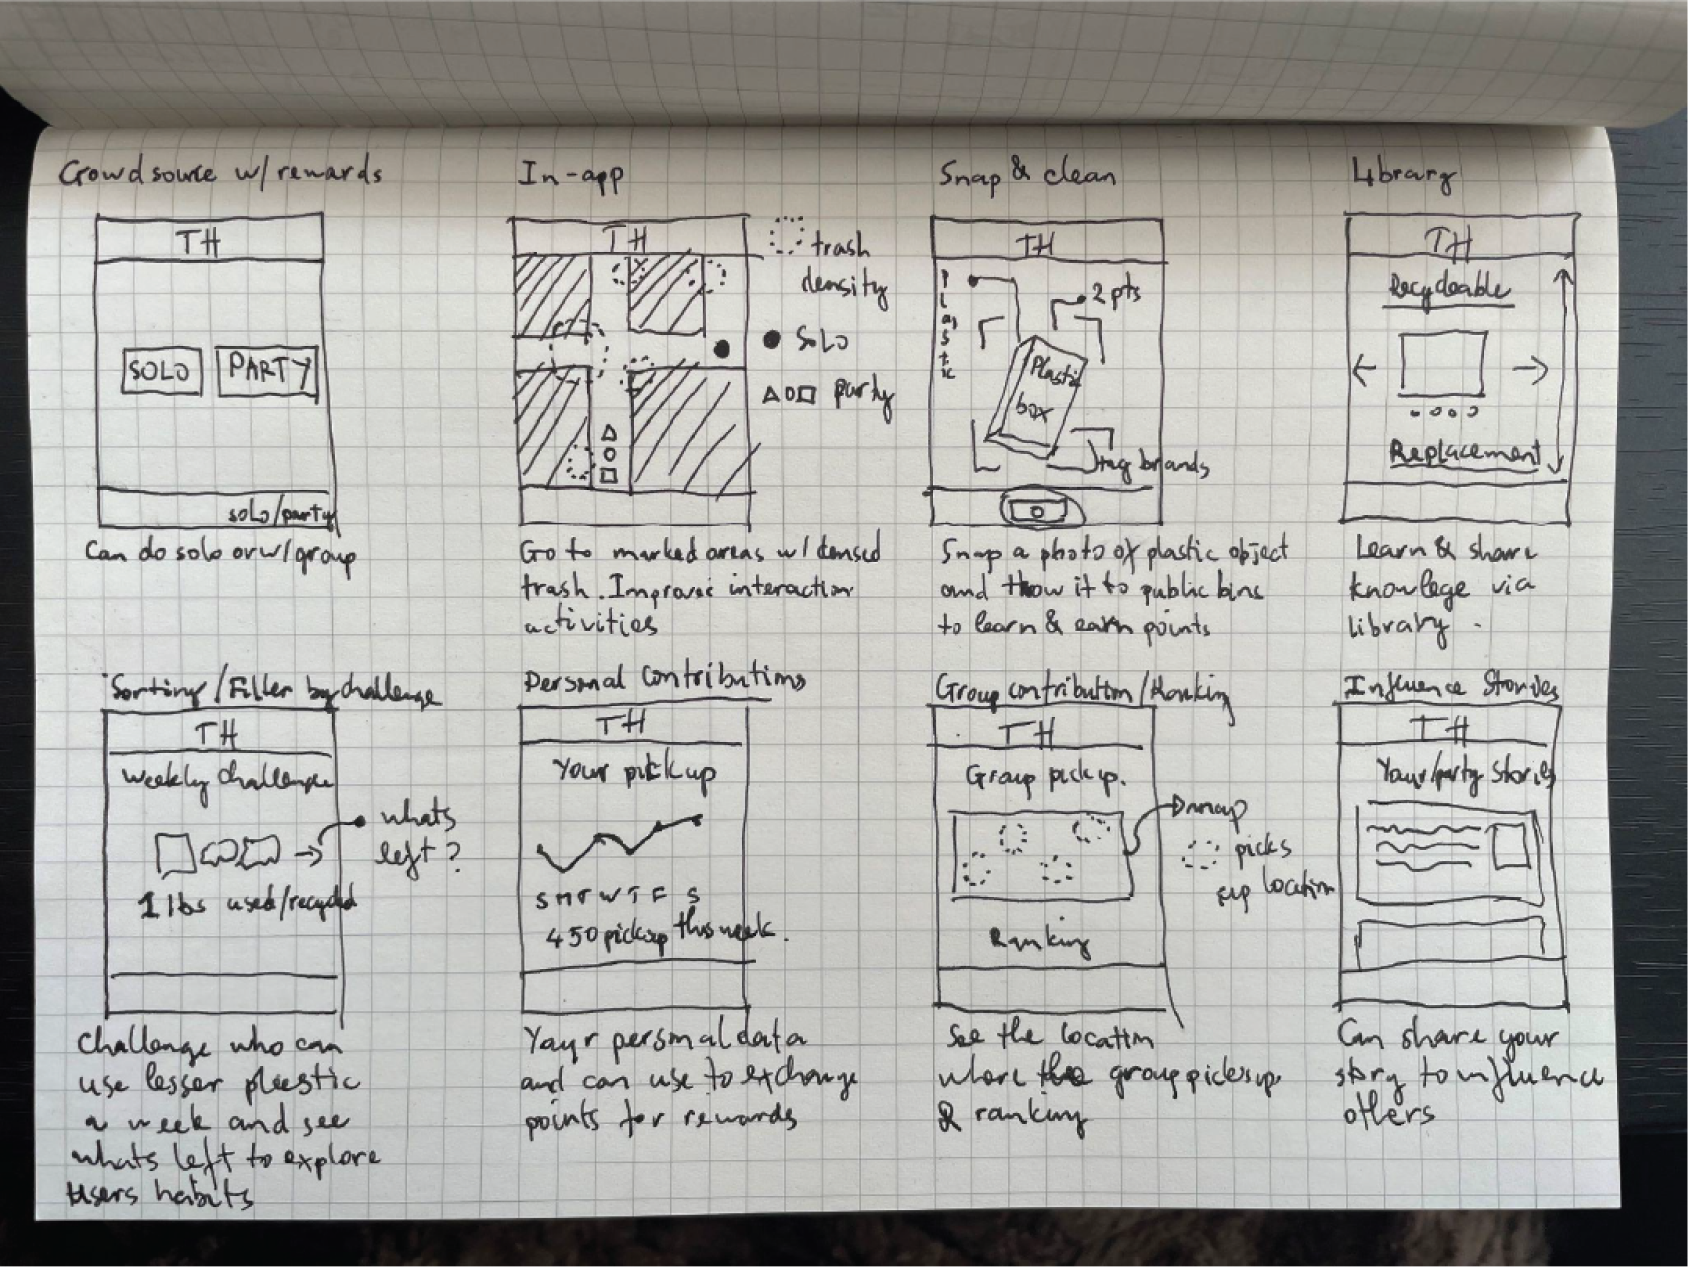 Crowdsource w/ rewards
TH
SOLO
PARTY
solo/party
Can do solo or w/ group
In-app
TH
trash
density
SOLO
party
Go to marked areas w/ densed
trash. Improve interaction
activities
Snap & clean
TH
Plastic
2 pts
Plastic
box
tag brands
Snap a photo of plastic object
and thow it to public bins
to learn & earn points
Library
TH
Recycleable
Replacement
Learn & share
knowlege via
library.
Sorting/Filter by challenge
TH
Weekly challenge
whats
left?
1 lbs used/recycled
Challenge who can
use lesser plastic
a week and see
whats left to explore
users habits
Personal Contributions
TH
Your pickup
S M T W T F S
450 pickup this week.
Your personal data
and can use to exchange
points for rewards
Group contribution/Ranking
TH
Group pickup.
map
picks
up location
Ranking
See the location
where the group picks up
& ranking
Influence Stories
TH
Your/party stories
Can share your
story to influence
others